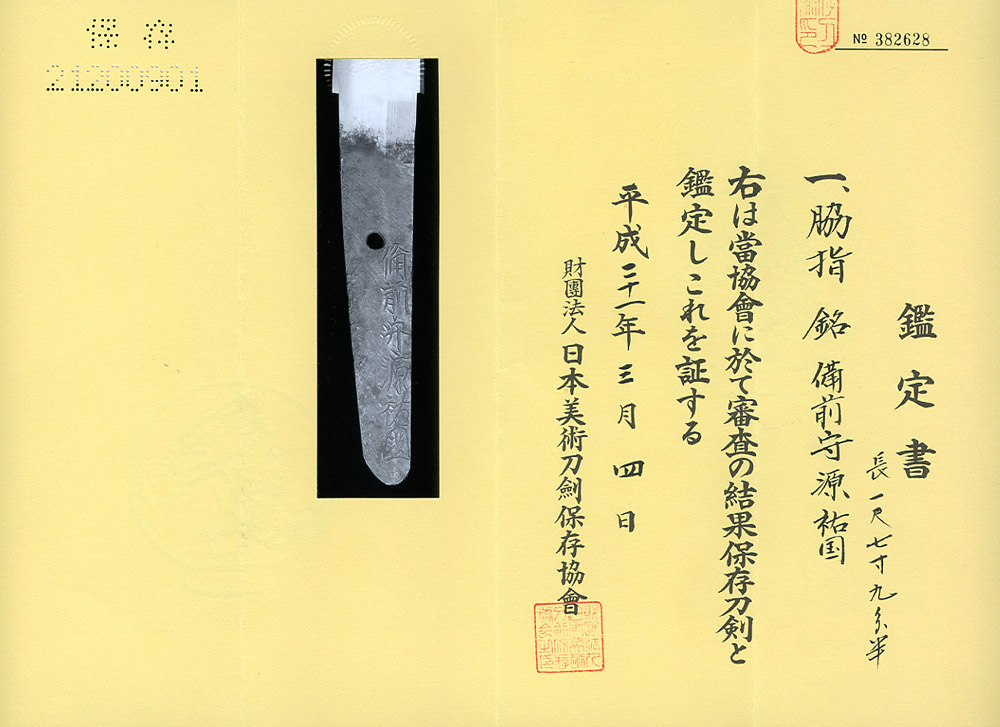 No 382628
鑑定書
一、脇指 銘 備前守源祐国
長一尺七寸九分半
右は當協會に於て審査の結果保存刀劍と
鑑定しこれを証する
平成二十一年三月四日
財團法人日本美術刀劍保存協會
保存
21200901
備前守源祐国